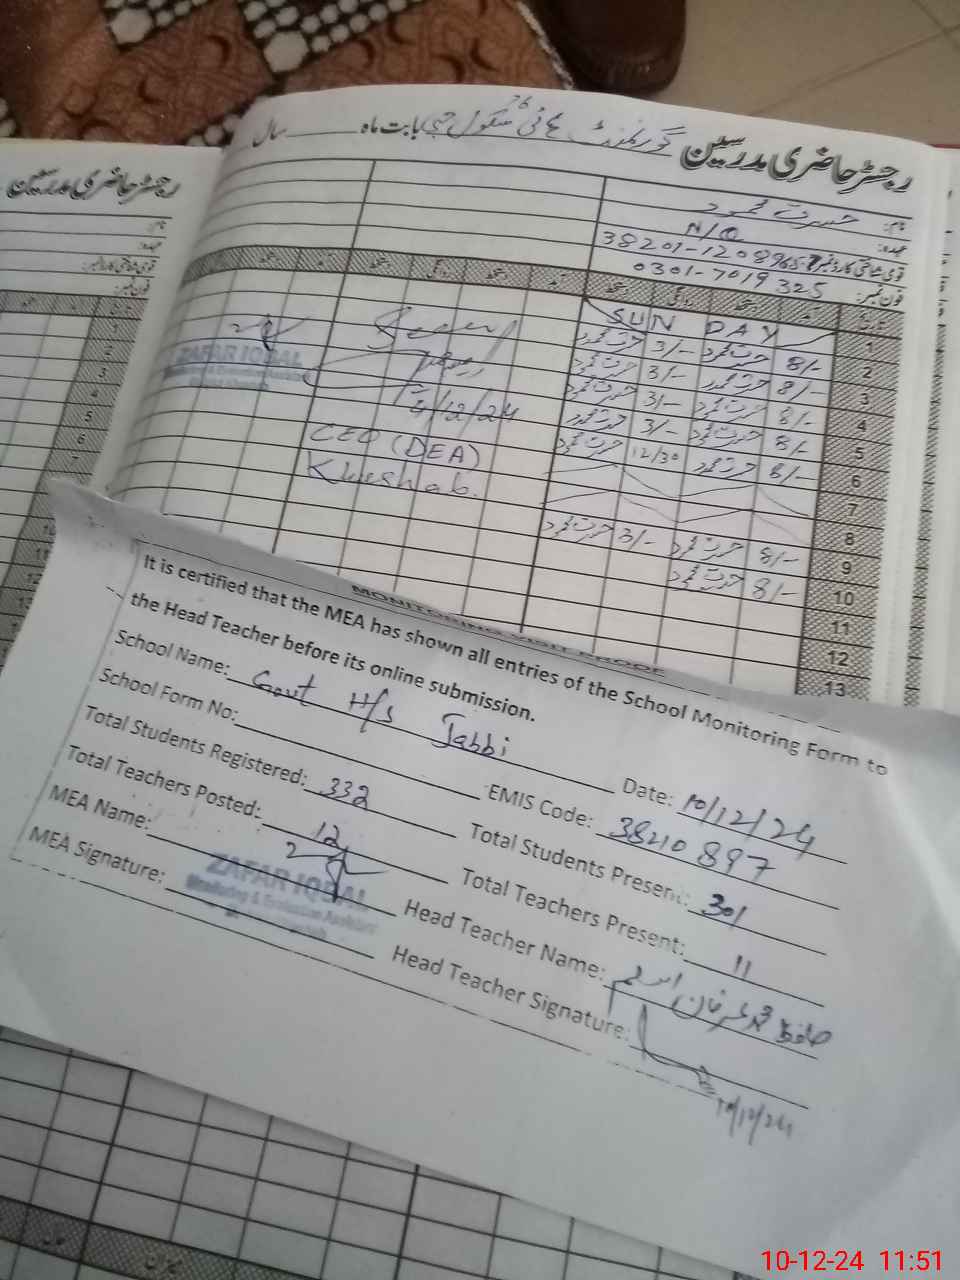 رجسٹر حاضری مدرسین گورنمنٹ ہائی سکول جبی بابت ماہ سال
رجسٹر حاضری مدرسین
نام: حسرت محمود
عہدہ: N/Q
قومی شناختی کارڈ نمبر: 38201-1208965-7
فون نمبر: 0301-7019325
نام:
عہدہ:
قومی شناختی کارڈ نمبر:
فون نمبر:
1 SUN DAY
2 8/- حسرت محمود 3/- حسرت محمود
3 8/- حسرت محمود 3/- حسرت محمود
4 8/- حسرت محمود 3/- حسرت محمود
5 8/- حسرت محمود 3/- حسرت محمود
6 8/- حسرت محمود 12/30 حسرت محمود
7
8
9 8/- حسرت محمود 3/- حسرت محمود
10 8/- حسرت محمود
11
12
13
1
2
3
4
5
6
7
10
11
12
13
ZAFAR IQBAL
Monitoring & Evaluation Assistant
4/12/24
CEO (DEA)
Khushab.
MONITORING VISIT PROOF
It is certified that the MEA has shown all entries of the School Monitoring Form to
the Head Teacher before its online submission.
School Name: Govt H/S Jabbi Date: 10/12/24
School Form No: EMIS Code: 38210897
Total Students Registered: 332 Total Students Present: 301
Total Teachers Posted: 12 Total Teachers Present: 11
MEA Name: Head Teacher Name: حافظ محمد عرفان اسلم
MEA Signature: Head Teacher Signature:
ZAFAR IQBAL
Monitoring & Evaluation Assistant
10/12/24
10-12-24 11:51